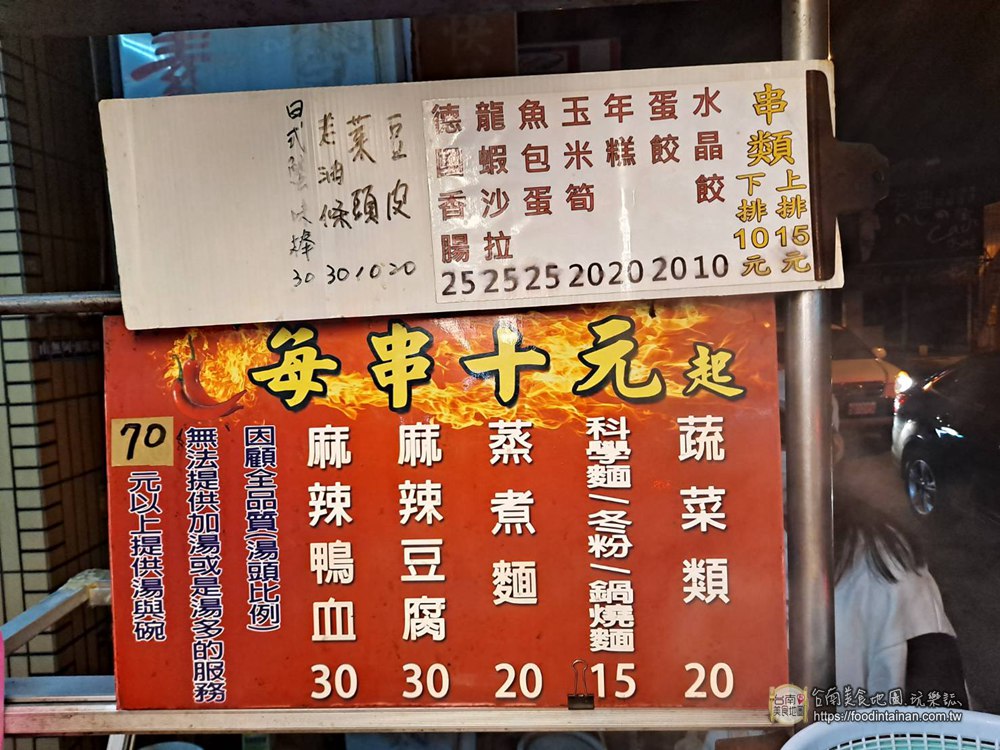 串類
上排15元
下排10元
水晶餃 10
蛋餃 20
年糕 20
玉米筍 20
魚包蛋 25
龍蝦沙拉 25
德國香腸 25
豆皮 20
菜頭 10
老油條 30
日式 30
每串十元起
蔬菜類 20
科學麵/冬粉/鍋燒麵 15
蒸煮麵 20
麻辣豆腐 30
麻辣鴨血 30
因顧全品質(湯頭比例)
無法提供加湯或是湯多的服務
70元以上提供湯與碗
台南美食地圖
台南美食地圖.玩樂誌
https://foodintainan.com.tw